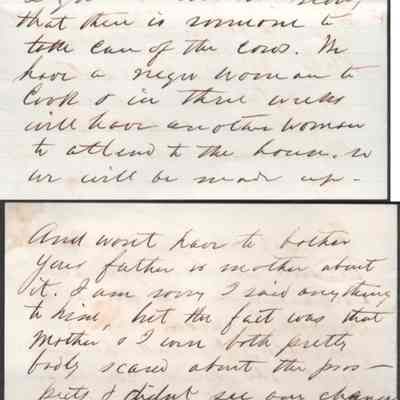 that there is someone to
take care of the cows. We
have a negro woman to
cook & in three weeks
will have another woman
to attend to the house. so
we will be made up -
And wont have to bother
your father or mother about
it. I am sorry I said anything
to him, but the fact was that
Mother & I were both pretty
badly scared about the pros-
pects & didn't see our chances